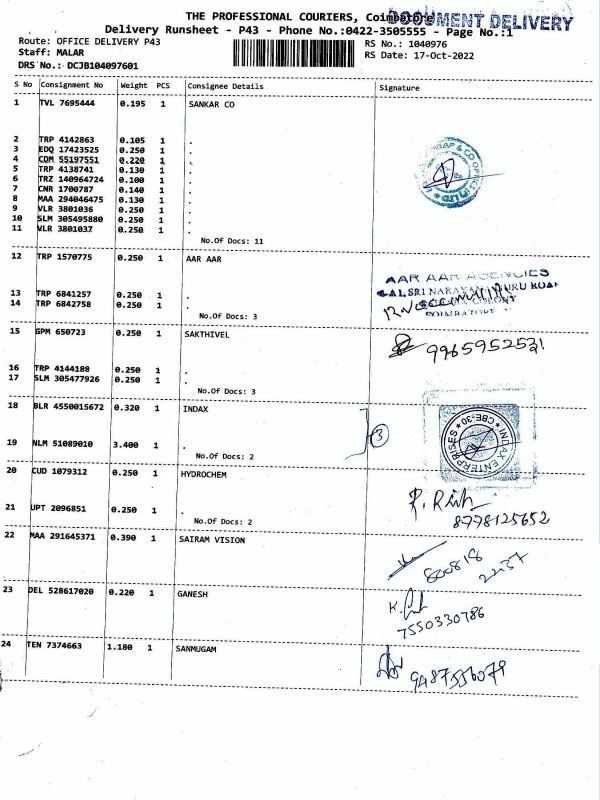 THE PROFESSIONAL COURIERS, Coimbatore
DOCUMENT DELIVERY
Delivery Runsheet - P43 - Phone No.:0422-3505555 - Page No.:1
Route: OFFICE DELIVERY P43
RS No.: 1040976
Staff: MALAR
RS Date: 17-Oct-2022
DRS No.: DCJB104097601
S No Consignment No Weight PCS Consignee Details Signature
1 TVL 7695444 0.195 1 SANKAR CO
2 TRP 4142863 0.105 1 .
3 EDQ 17423525 0.250 1 .
4 COM 55197551 0.220 1 .
5 TRP 4138741 0.130 1 .
6 TRZ 140964724 0.100 1 .
7 CNR 1700787 0.140 1 .
8 MAA 294046475 0.130 1 .
9 VLR 3801036 0.250 1 .
10 SLM 305495880 0.250 1 .
11 VLR 3801037 0.250 1 .
No.Of Docs: 11
12 TRP 1570775 0.250 1 AAR AAR
AAR AAR AGENCIES
13 TRP 6841257 0.250 1 .
14 TRP 6842758 0.250 1 .
COIMBATORE
No.Of Docs: 3
15 GPM 650723 0.250 1 SAKTHIVEL
9965952531
16 TRP 4144188 0.250 1 .
17 SLM 305477926 0.250 1 .
No.Of Docs: 3
18 BLR 4550015672 0.320 1 INDAX
3
INDAX ENTERPRISES CBE-30
19 NLM 51089010 3.400 1 .
No.Of Docs: 2
20 CUD 1079312 0.250 1 HYDROCHEM
21 UPT 2096851 0.250 1 .
8778125652
No.Of Docs: 2
22 MAA 291645371 0.390 1 SAIRAM VISION
800818
2237
23 DEL 528617020 0.220 1 GANESH
7550330786
24 TEN 7374663 1.180 1 SANMUGAM
9487556079